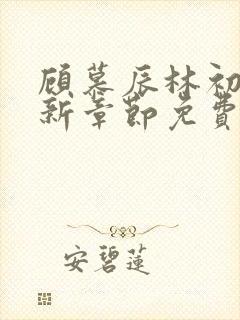 顾慕辰林初
新章节免费
安碧莲